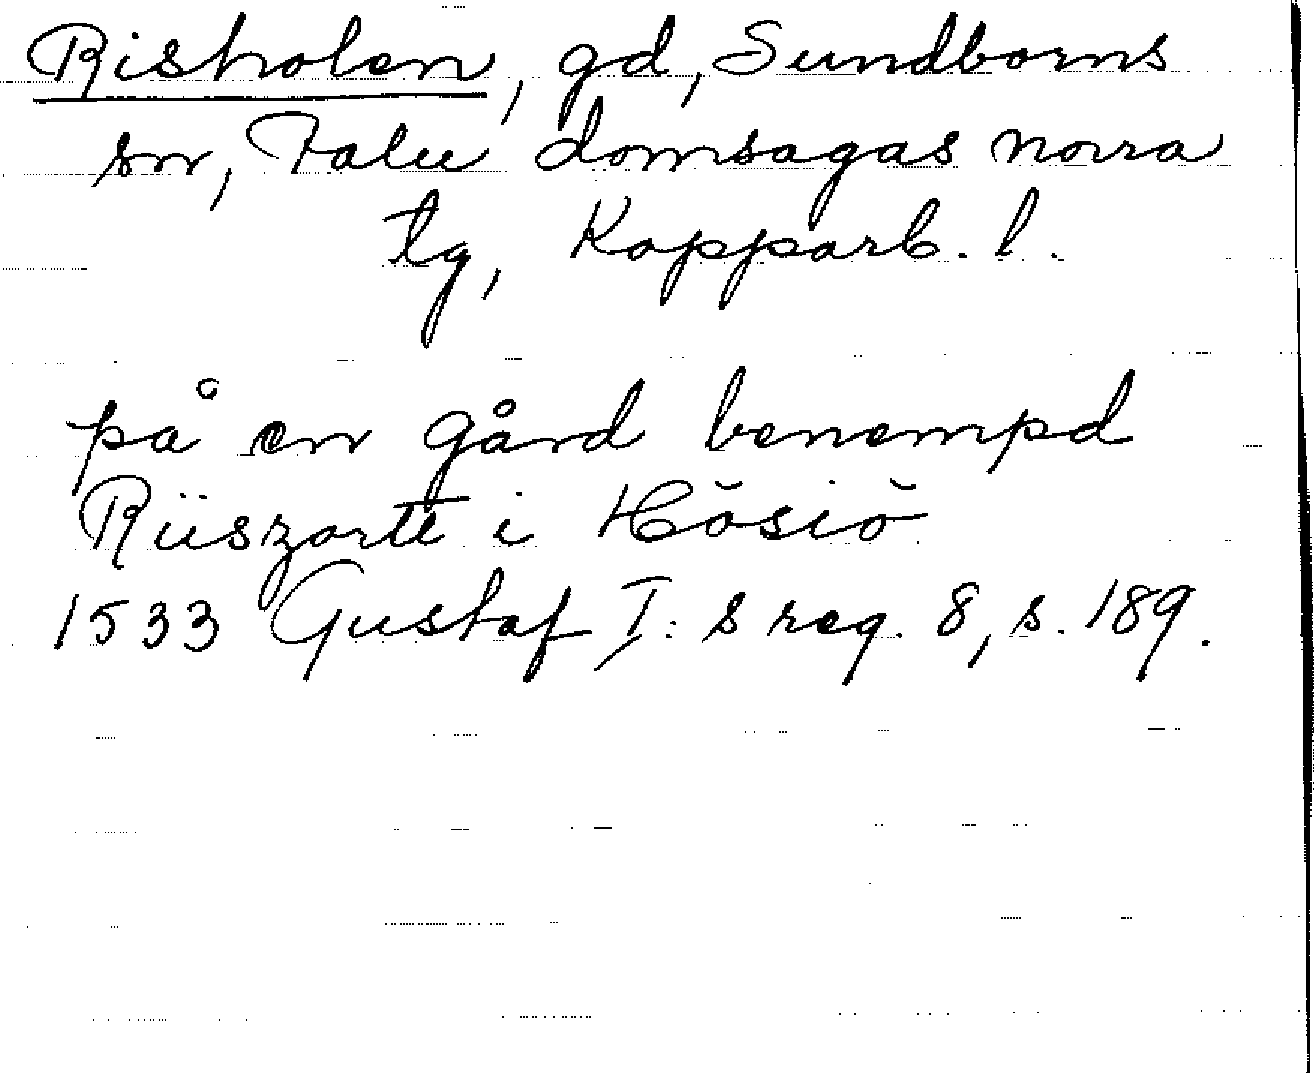 Risholen, gd, Sundborns
sn, Falu domsagas norra
tg, Kopparb. l.
på en gård benempd
Riiszarte i Hösiö
1533 Gustaf I:s reg. 8, s. 189.